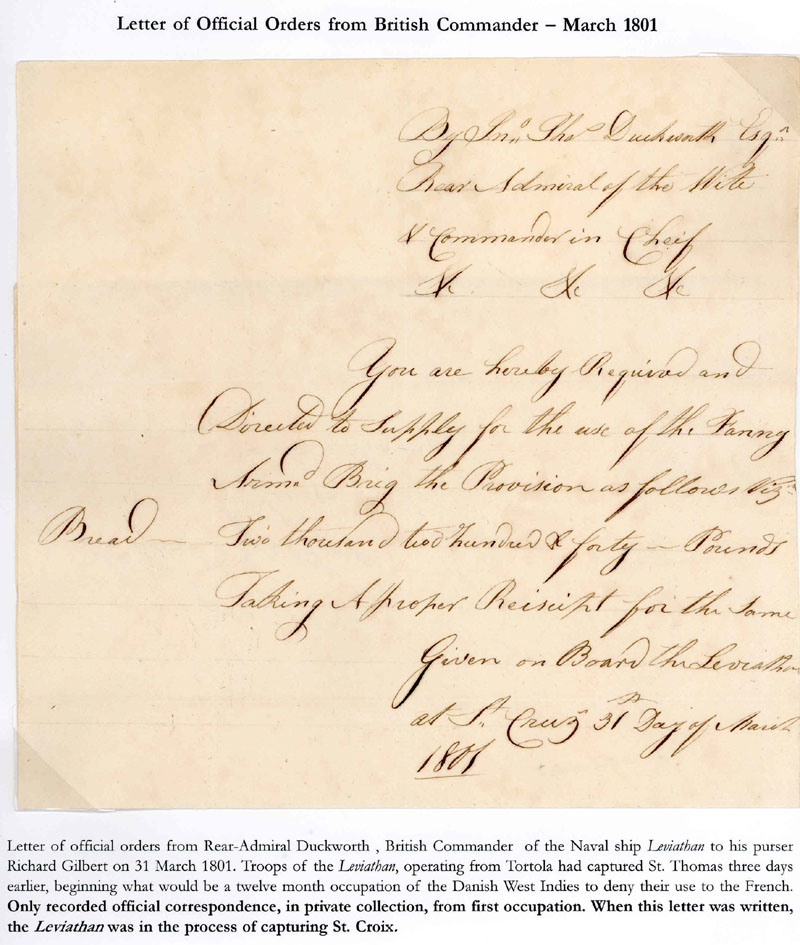 Letter of Official Orders from British Commander – March 1801
By Jno Thos Duckworth Esqr
Rear Admiral of the Wite
& Commander in Cheif
&c &c &c
You are hereby Required and
Directed to Supply for the use of the Fanny
Armd Brig the Provision as follows Vizt
Bread — Two thousand two hundred & forty — Pounds
Taking A proper Reiscipt for the Same
Given on Board the Leviathan
at St Cruz 31st Day of March
1801
Letter of official orders from Rear-Admiral Duckworth , British Commander of the Naval ship Leviathan to his purser
Richard Gilbert on 31 March 1801. Troops of the Leviathan, operating from Tortola had captured St. Thomas three days
earlier, beginning what would be a twelve month occupation of the Danish West Indies to deny their use to the French.
Only recorded official correspondence, in private collection, from first occupation. When this letter was written,
the Leviathan was in the process of capturing St. Croix.